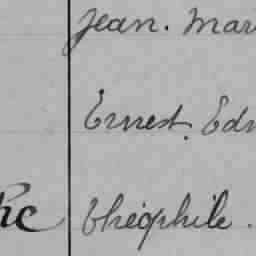 Jean. Mar
Ernest. Ed
Théophile.